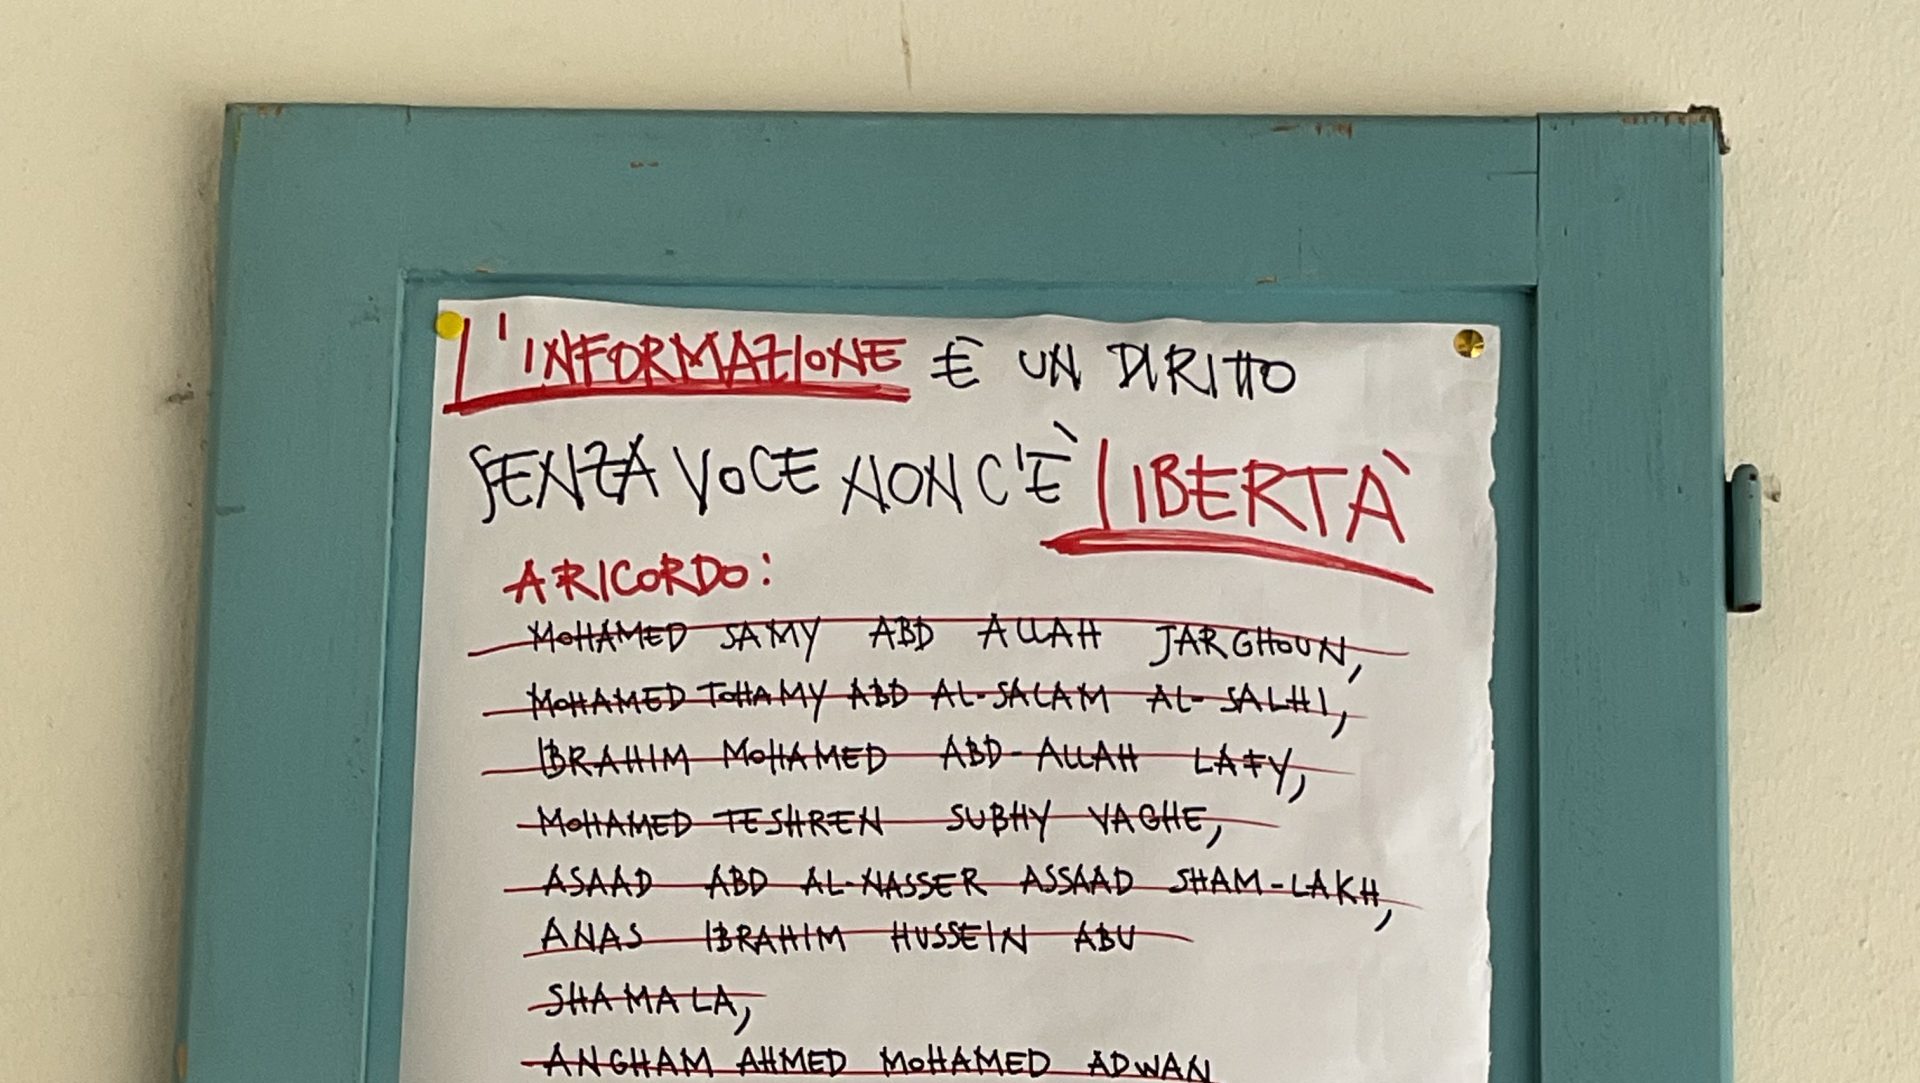 L'INFORMAZIONE È UN DIRITTO
SENZA VOCE NON C'È LIBERTÀ
A RICORDO:
MOHAMED SAMY ABD ALLAH JARGHOUN,
MOHAMED TOHAMY ABD AL-SALAM AL-SALHI,
IBRAHIM MOHAMED ABD-ALLAH LAFY,
MOHAMED TESHREN SUBHY YAGHE,
ASAAD ABD AL-NASSER ASSAAD SHAM-LAKH,
ANAS IBRAHIM HUSSEIN ABU
SHAMALA,
ANGHAM AHMED MOHAMED ADWAN